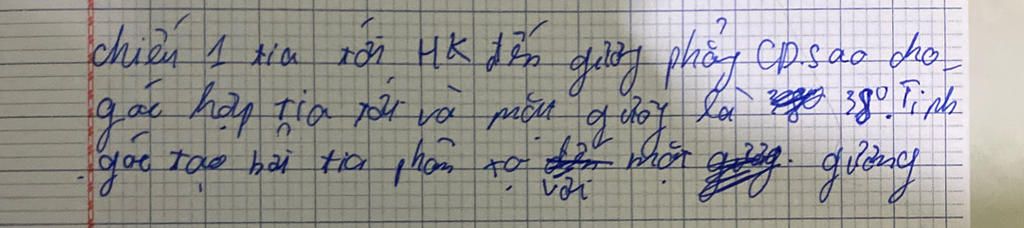 chiếu 1 tia tới HK đến gương phẳng CD. sao cho
góc hợp tia tới và mặt gương là 38°. Tính
góc tạo bởi tia phản xạ với mặt gương